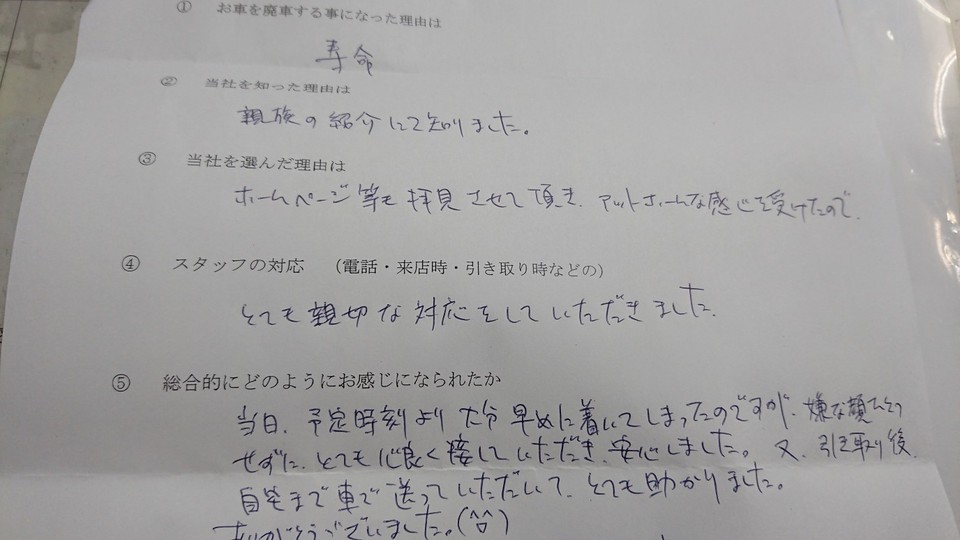 ① お車を廃車する事になった理由は
寿命
② 当社を知った理由は
親族の紹介にて知りました。
③ 当社を選んだ理由は
ホームページ等も拝見させて頂き、アットホームな感じを受けたので。
④ スタッフの対応 （電話・来店時・引き取り時などの）
とても親切な対応をしていただきました。
⑤ 総合的にどのようにお感じになられたか
当日、予定時刻より大分早めに着いてしまったのですが、嫌な顔ひとつ
せずに、とても心良く接していただき、安心しました。又、引き取り後、
自宅まで車で送っていただいて、とても助かりました。
ありがとうございました。(^^)